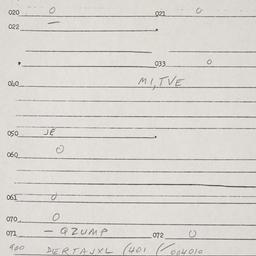 020 0 021 0
022 —
033 0
040 MI, TVE
050 JE
060 0
061 0
070 0
071 — QZUMP 072 0
900 DIERTAJXL (401 (/ 004010